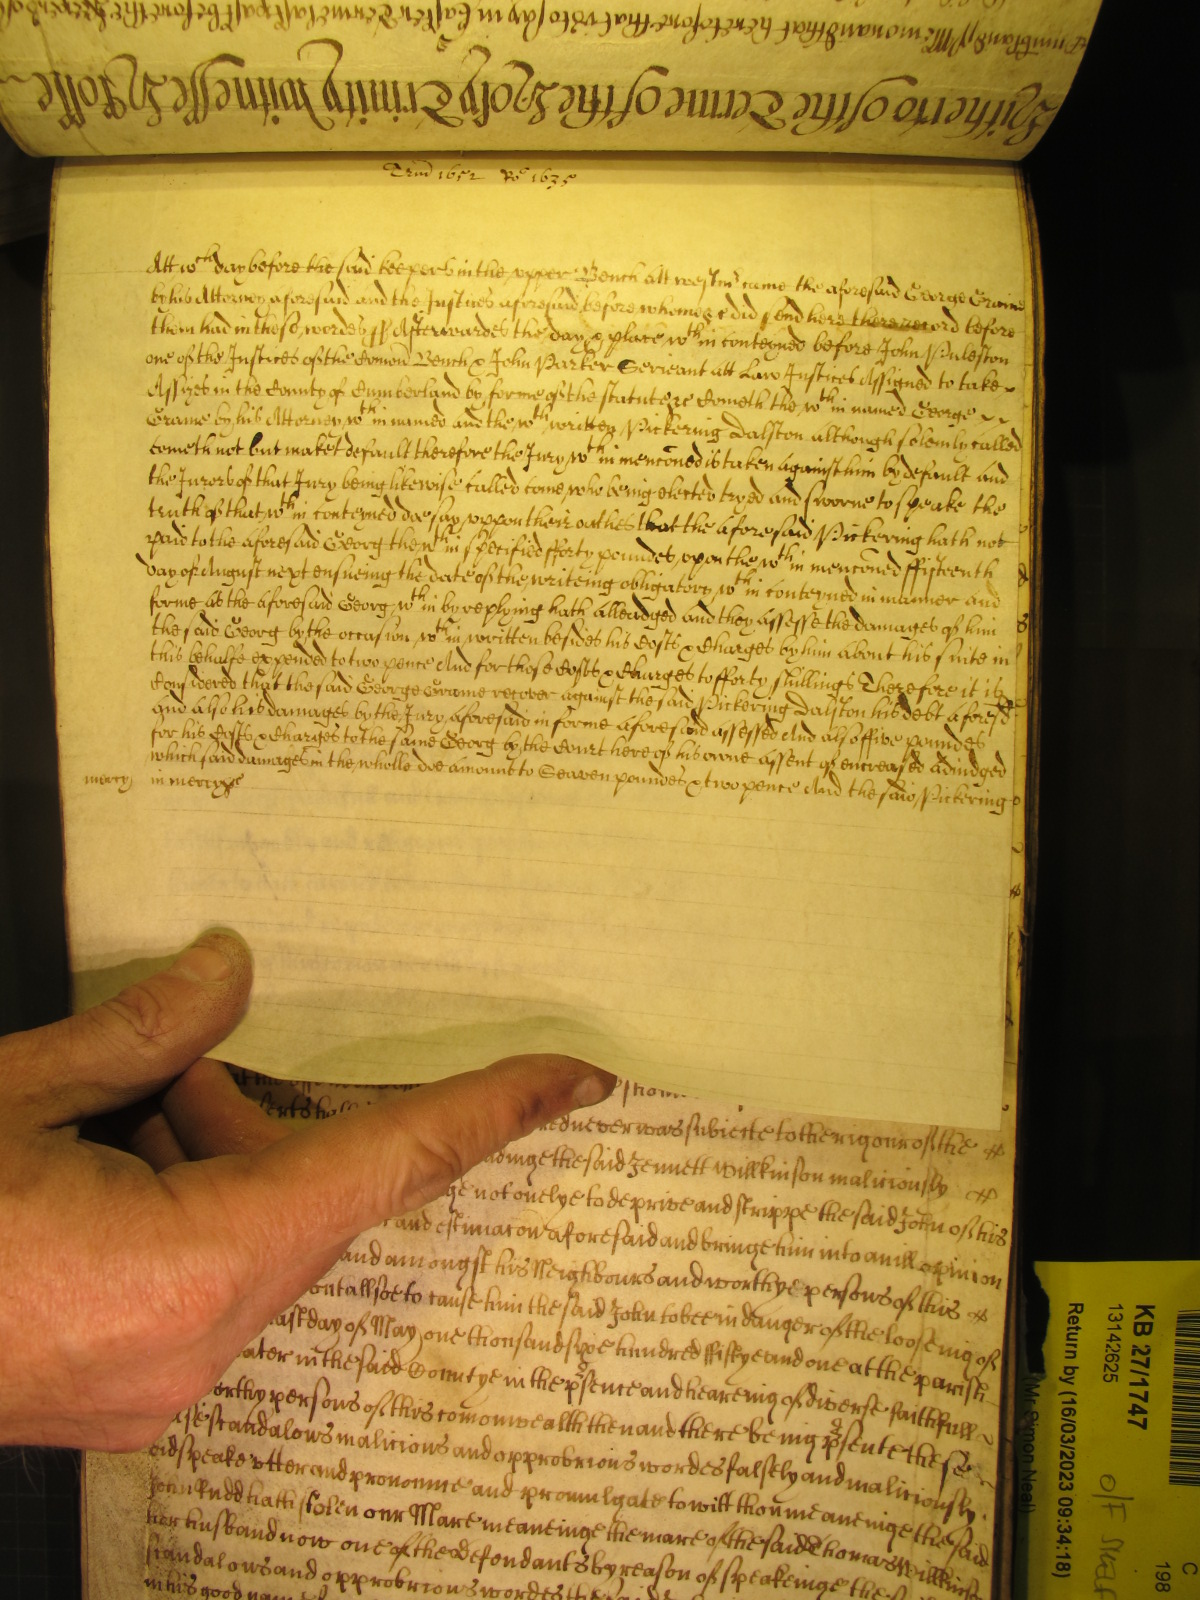 Comitland ss Memorand that heretofore that is to say in Easter Terme last past before the keepers of
Hitherto of the Terme of the Holy Trinity Witnesse H Rolle
Trin 1652 Ro 1635
Att wch day before the said keepers in the upper Bench att Westmr came the aforesaid George Grame
by his Attorney aforesaid and the Justices aforesaid before whome &c did send here there record before
them had in these wordes ss Afterwardes the day & place wthin conteyned before John Puleston
one of the Justices of the Comon Bench & John Parker Serieant att Law Justices Assigned to take
Assizes in the County of Cumberland by forme of the statute &c Cometh the wthin named George
Grame by his Attorney wthin named and the wthin written Pickering Dalston although solemly called
cometh not but maketh default therefore the Jury wthin menconed is taken against him by default and
the Jurors of that Jury being likewise called come who being elected tryed and sworne to speake the
truth of that wthin conteyned doe say uppon their oathes that the aforesaid Pickering hath not
paid to the aforesaid Georg the wthin specified fforty poundes upon the wthin menconed ffifteenth
day of August next ensueing the date of the writeing obligatory wthin conteyned in manner and
forme as the aforesaid Georg wthin by replying hath alleadged and they assesse the damages of him
the said Georg by the occasion wthin written besides his Costs & Charges by him about his suite in
this behalfe expended to two pence And for those Costs & Charges to fforty shillings Therefore it is
Considered that the said George Grame recover against the said Pickering Dalston his debt aforesd
and also his damages by the Jury aforesaid in forme aforesaid assessed And also ffive poundes
for his Costs & Charges to the same Georg by the Court here of his owne assent of encrease adiudged
which said damages in the wholle doe amount to Seaven poundes & two pence And the said Pickering
mercy in mercy &c
red never was subiecte to the rigour of the
adinge the said Jennett Willkinson maliciously
ge not onelye to deprive and strippe the said John of his
and estimacon aforesaid and bringe him into an ill opinion
and amongst his Neighbours and worthye persons of this
allsoe to cause him the said John to bee in danger of the looseing of
last day of May one thousand sixe hundred ffiftye and one at the parish
ater in the said Countye in the psence and heareing of diverse faithfull
orthy persons of this comonwealth then and there being psente these
scandalows malicious and opprobrious wordes falsely and maliciously
did speake utter and pronounce and promulgate to witt thou meaneinge the said
John Rudd hath stolen our Mare meaneinge the mare of the said Thomas Willkinson
her husband now one of the defendants by reason of speakeinge the
scandalows and opprobrious wordes the said
in his good name
KB 27/1747
13142625
Return by (16/03/2023 09:34:18)
(Mr Simon Neal)
O/F
C
198